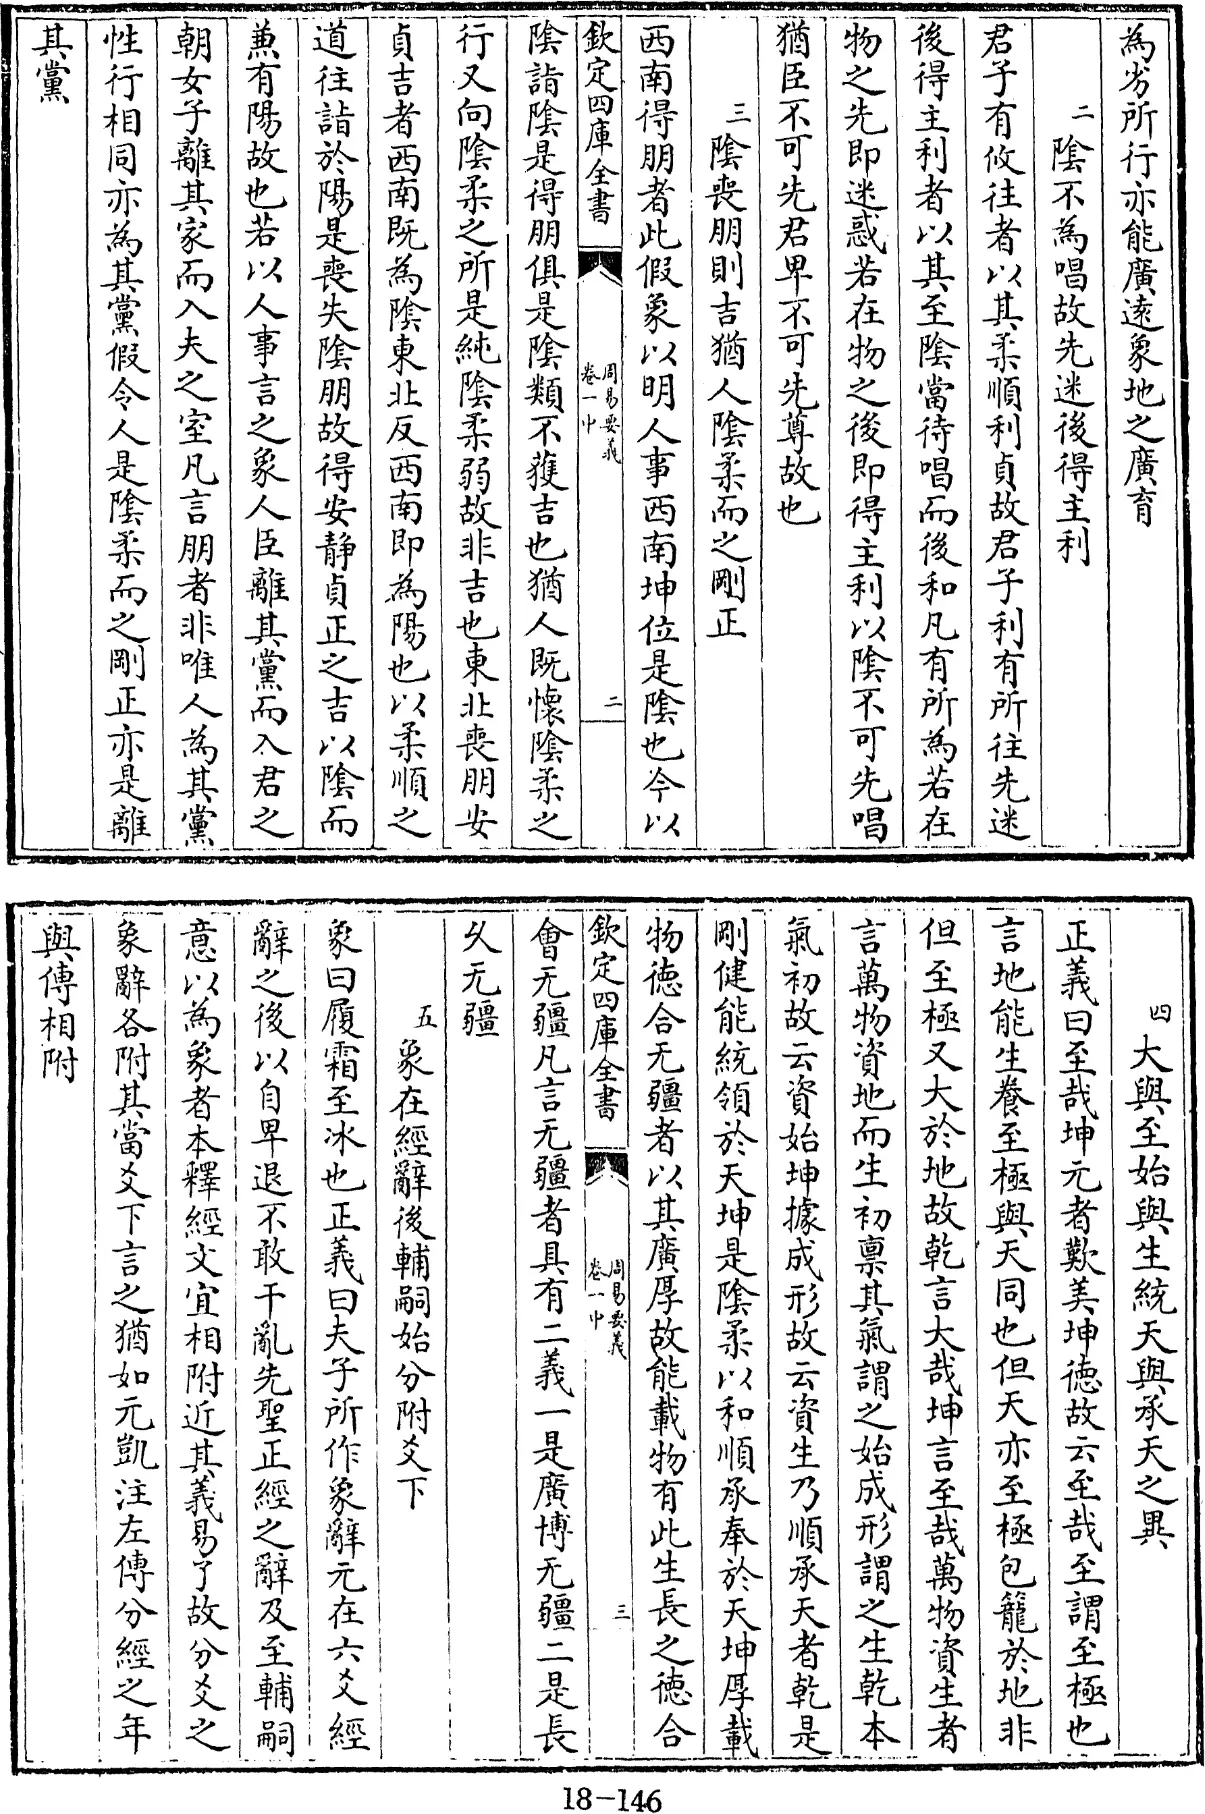 為劣所行亦能廣逺象地之廣育
二陰不為唱故先迷後得主利
君子有攸往者以其柔順利貞故君子利有所往先迷
後得主利者以其至陰當待唱而後和凡有所為若在
物之先即迷惑若在物之後即得主利以陰不可先唱
猶臣不可先君卑不可先尊故也
三陰喪朋則吉猶人陰柔而之剛正
西南得朋者此假象以明人事西南坤位是陰也今以
欽定四庫全書
周易要義
卷一中
二
陰詣陰是得朋俱是陰類不獲吉也猶人既懷陰柔之
行又向陰柔之所是純陰柔弱故非吉也東北喪朋安
貞吉者西南既為陰東北反西南即為陽也以柔順之
道往詣於陽是喪失陰朋故得安靜貞正之吉以陰而
兼有陽故也若以人事言之象人臣離其黨而入君之
朝女子離其家而入夫之室凡言朋者非唯人為其黨
性行相同亦為其黨假令人是陰柔而之剛正亦是離
其黨
四大與至始與生統天與承天之異
正義曰至哉坤元者歎美坤德故云至哉至謂至極也
言地能生養至極與天同也但天亦至極包籠於地非
但至極又大於地故乾言大哉坤言至哉萬物資生者
言萬物資地而生初禀其氣謂之始成形謂之生乾本
氣初故云資始坤據成形故云資生乃順承天者乾是
剛健能統領於天坤是陰柔以和順承奉於天坤厚載
物德合无疆者以其廣厚故能載物有此生長之德合
欽定四庫全書
周易要義
卷一中
三
會无疆凡言无疆者具有二義一是廣博无疆二是長
乆无疆
五象在經辭後輔嗣始分附爻下
象曰履霜至冰也正義曰夫子所作象辭元在六爻經
辭之後以自卑退不敢干亂先聖正經之辭及至輔嗣
意以為象者本釋經文宜相附近其義易了故分爻之
象辭各附其當爻下言之猶如元凱注左傳分經之年
與傳相附
18-146